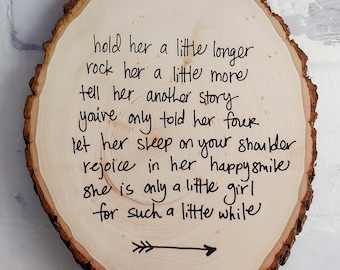 hold her a little longer
rock her a little more
tell her another story
you've only told her four
let her sleep on your shoulder
rejoice in her happy smile
she is only a little girl
for such a little while